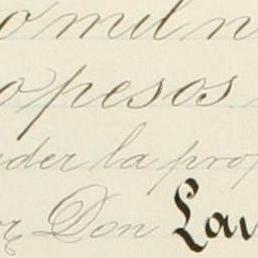 o mil n
o pesos
der la prop
or Don Lau